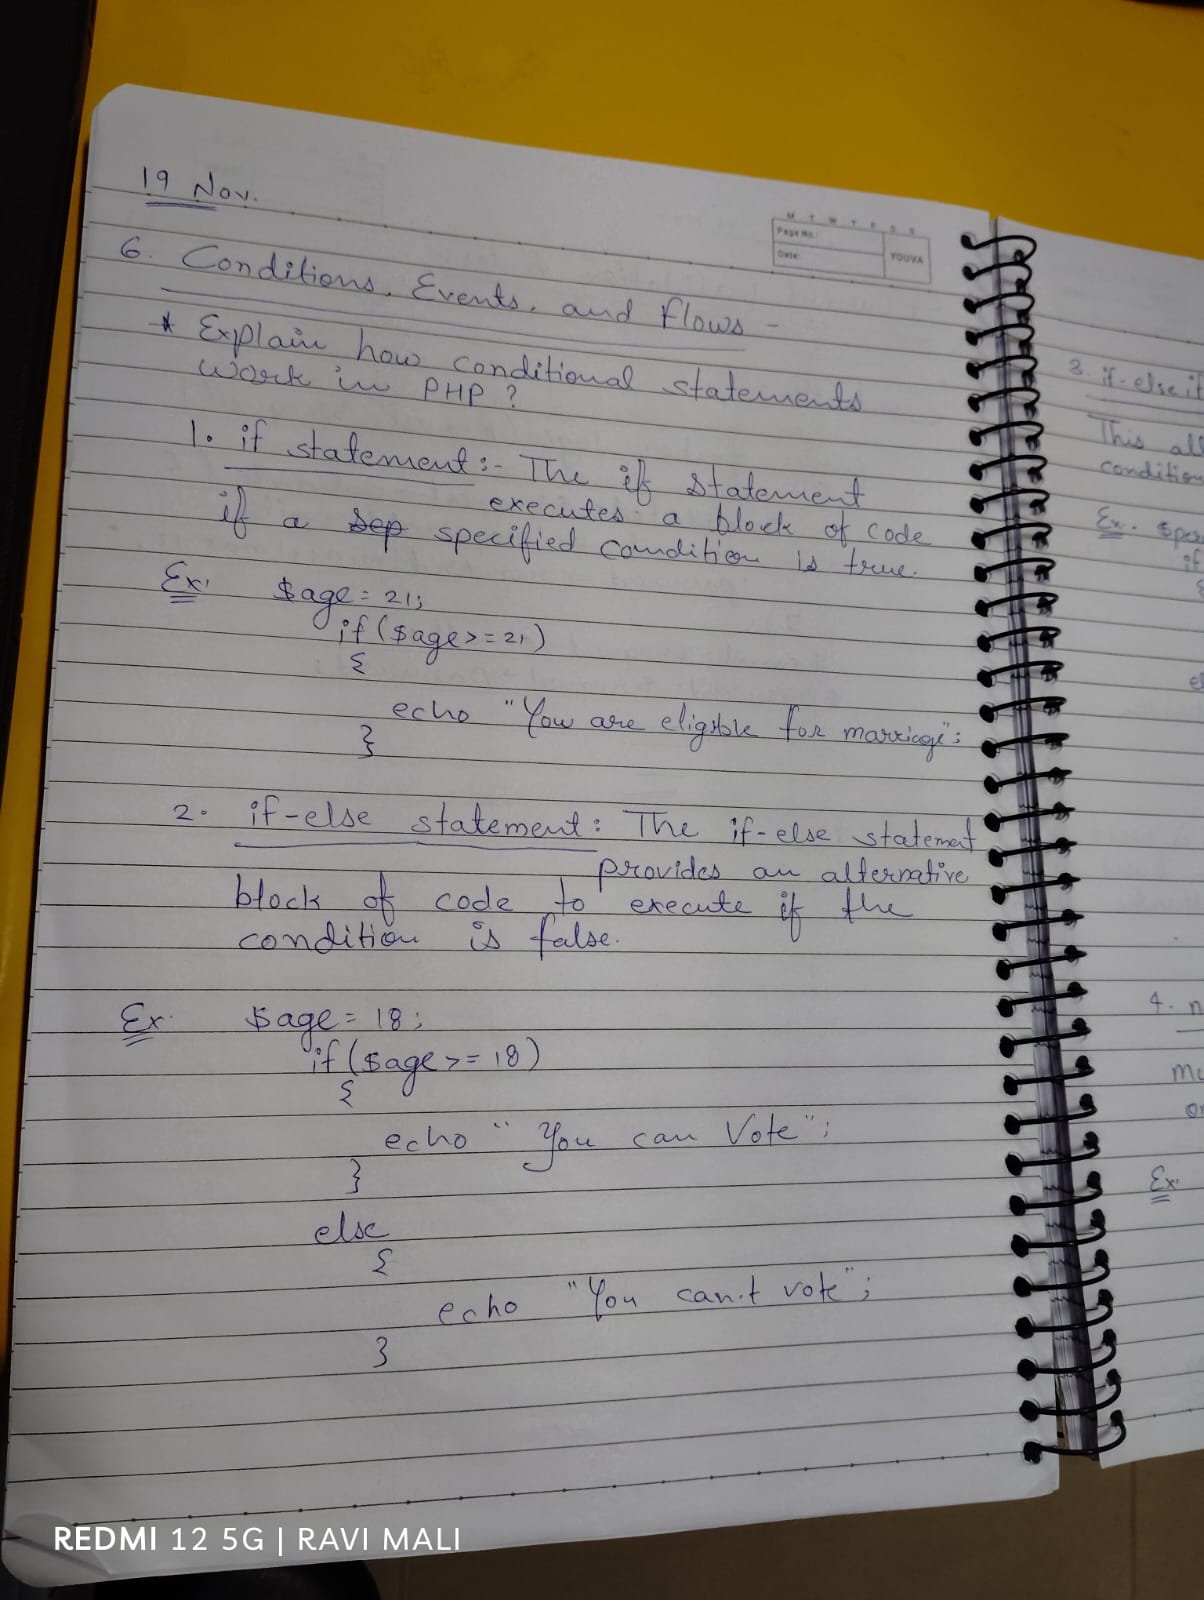 19 Nov.
M T W T F S S
Page No.:
Date:
YOUVA
6. Conditions, Events, and Flows -
* Explain how conditional statements
work in PHP ?
1. if statement :- The if statement
executes a block of code
if a specified condition is true.
Ex. $age = 21;
if ($age >= 21)
{
echo "You are eligible for marriage";
}
2. if-else statement : The if-else statement
provides an alternative
block of code to execute if the
condition is false.
Ex. $age = 18;
if ($age >= 18)
{
echo "You can Vote";
}
else
{
echo "You can't vote";
}
3. if-else if
This all
condition
Ex.
if
{
4. n
mu
or
Ex.
REDMI 12 5G | RAVI MALI